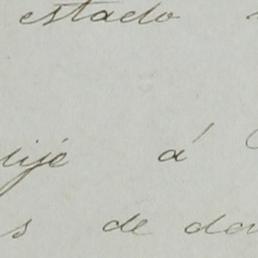 estado
dije á
s de don